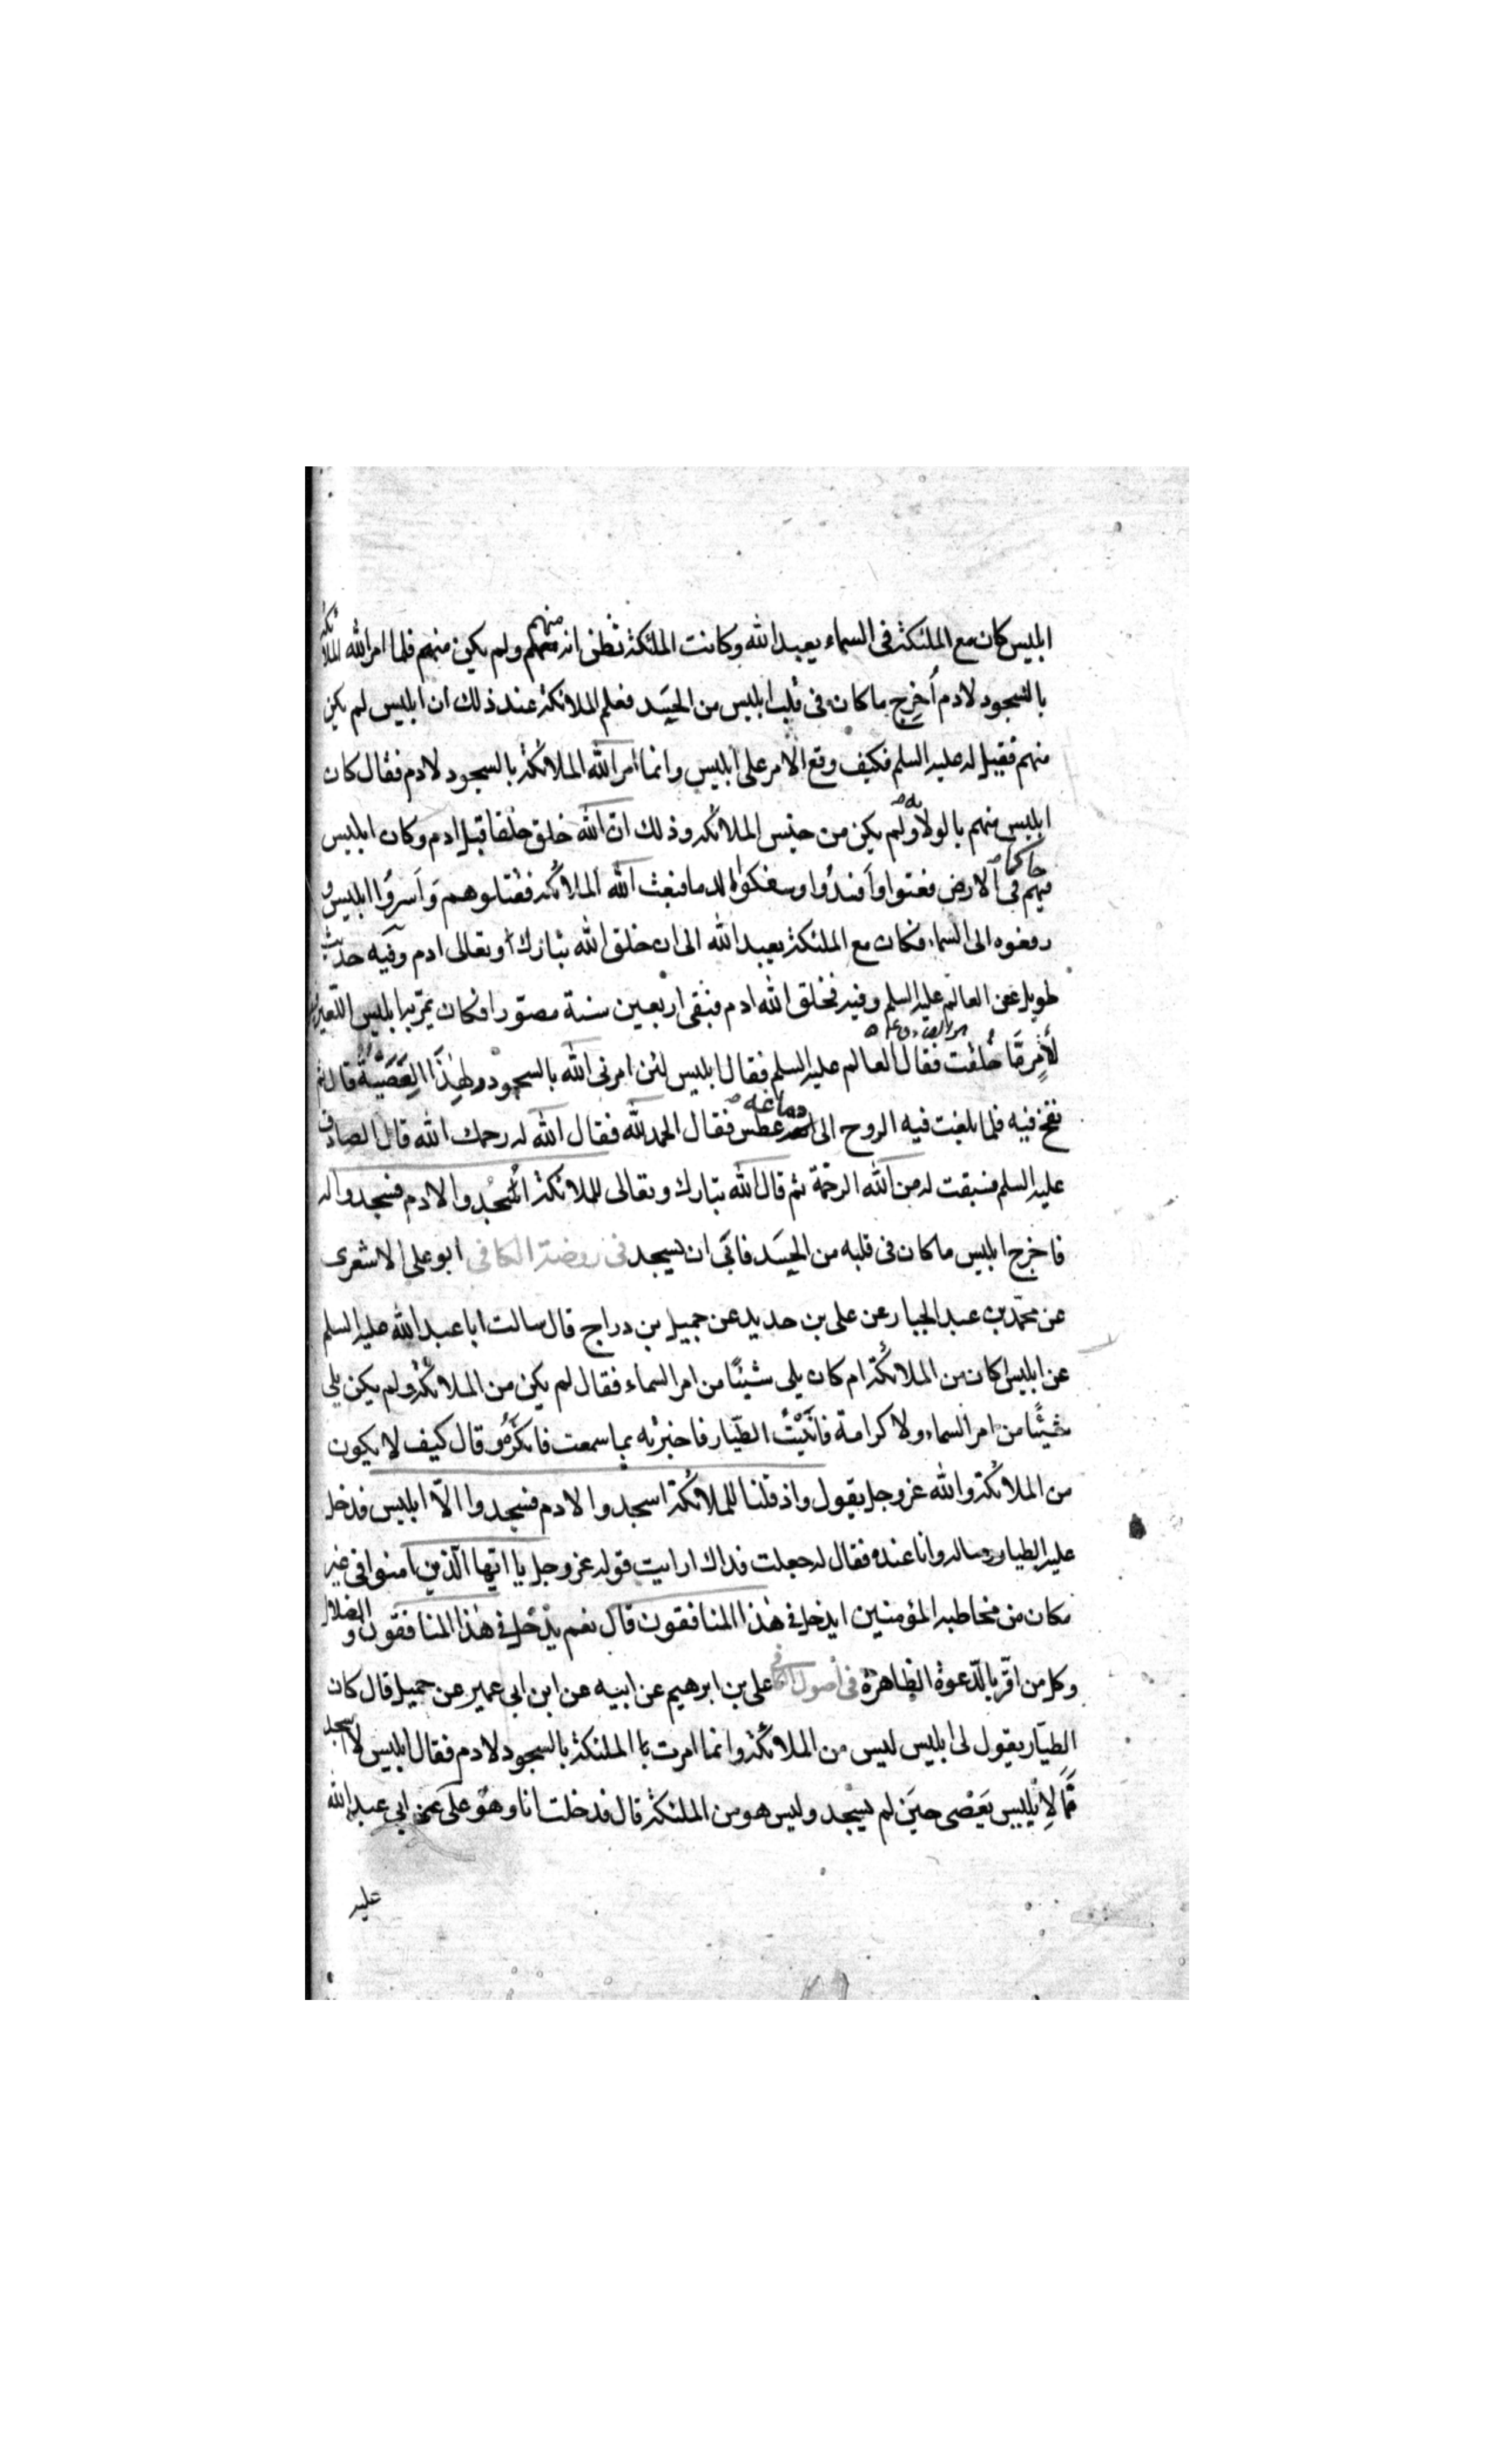 ابليس كان مع الملئكة فى السماء يعبد الله وكانت الملئكة تظن انه منهم ولم يكن منهم فلما امر الله الملائكة
بالسجود لادم أخرج ما كان فى قلب ابليس من الحسد فعلم الملائكة عند ذلك ان ابليس لم يكن
منهم فقيل له عليه السلم فكيف وقع الامر على ابليس وانما امر الله الملائكة بالسجود لادم فقال كان
ابليس منهم بالولاء ولم يكن من جنس الملائكة وذلك ان الله خلق خلقا قبل ادم وكان ابليس
فيهم حاكما فى الارض فعتوا وأفسدوا وسفكوا الدما فبعث الله الملائكة فقتلوهم وأسروا ابليس و
رفعوه الى السماء فكان مع الملئكة يعبد الله الى ان خلق الله تبارك وتعالى ادم وفيه حديث
طويل عن العالم عليه السلم وفيه فخلق الله ادم فبقى اربعين سنة مصورا فكان يمر به ابليس اللعين فيقول
لأمر ما خلقت فقال العالم عليه السلم فقال ابليس لئن امرنى الله بالسجود لهذا لعصيته قال ثم
نفخ فيه فلما بلغت فيه الروح الى دماغه عطس فقال الحمد لله فقال الله له رحمك الله قال الصادق
عليه السلم فسبقت له من الله الرحمة ثم قال الله تبارك وتعالى للملائكة اسجدوا لادم فسجدوا له
فاخرج ابليس ما كان فى قلبه من الحسد فابى ان يسجد فى روضة الكافى ابو على الاشعرى
عن محمد بن عبد الجبار عن على بن حديد عن جميل بن دراج قال سالت ابا عبد الله عليه السلم
عن ابليس كان من الملائكة ام كان يلى شيئا من امر السماء فقال لم يكن من الملائكة ولم يكن يلى
شيئا من امر السماء ولا كرامة فاتيت الطيار فاخبرته بما سمعت فانكره وقال كيف لا يكون
من الملائكة والله عز وجل يقول واذ قلنا للملائكة اسجدوا لادم فسجدوا الا ابليس فدخل
عليه الطيار وساله وانا عنده فقال له جعلت فداك ارايت قوله عز وجل يا ايها الذين امنوا فى غير
مكان من مخاطبه المؤمنين ايدخل فى هذا المنافقون قال نعم يدخل فى هذا المنافقون والضلال
وكل من اقر بالدعوة الظاهرة فى اصول الكافى على بن ابرهيم عن ابيه عن ابن ابى عمير عن جميل قال كان
الطيار يقول لى ابليس ليس من الملائكة وانما امرت الملئكة بالسجود لادم فقال ابليس لا اسجد
فما لابليس يعصى حين لم يسجد وليس هو من الملئكة قال فدخلت انا وهو على ابي عبد الله
عليه